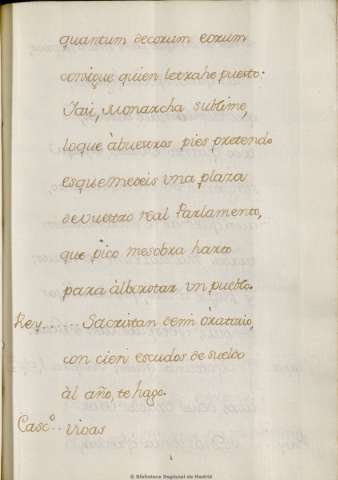 quantum decorum eorum
consigue quien letrahe puesto.
Iaú, Monarcha sublime,
loque àbuestros pies pretendo
esquemedeis una plaza
devuestro real Parlamento,
que pico mesobra harto
para àlborotar un pueblo.
Rey... Sacristan demi òratorio,
con cien escudos de sueldo
àl año, te hago.
Casc.º.. vivas
© Biblioteca Regional de Madrid